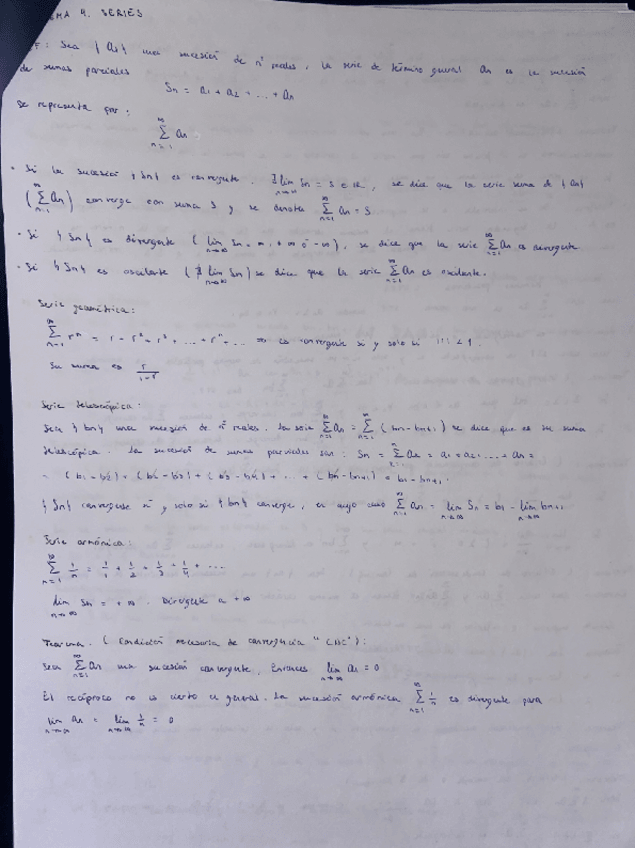 TEMA 4. SERIES
DEF: Sea {an} una sucesión de nº reales, la serie de término general an es la sucesión
de sumas parciales
Sn = a1 + a2 + ... + an
Se representa por:
∞ Σ n=1 an
· Si la sucesión {Sn} es convergente. ∃ lim n→∞ Sn = S ∈ R, se dice que la serie suma de {an}
(∞ Σ n=1 an) converge con suma S y se denota ∞ Σ n=1 an = S
· Si {Sn} es divergente (lim n→∞ Sn = ∞, +∞ ó -∞), se dice que la serie ∞ Σ n=1 an es divergente
· Si {Sn} es oscilante (∄ lim n→∞ Sn) se dice que la serie ∞ Σ n=1 an es oscilante.
Serie geométrica:
∞ Σ n=1 r^n = r + r² + r³ + ... + r^n + ... es convergente si y solo si |r| < 1.
Su suma es r/(1-r)
Serie telescópica:
Sea {bn} una sucesión de nº reales. La serie ∞ Σ n=1 an = ∞ Σ n=1 (bn - bn+1) se dice que es una suma
telescópica. La sucesión de sumas parciales son: Sn = Σ an = a1 + a2 + ... + an =
= (b1 - b2) + (b2 - b3) + (b3 - b4) + ... + (bn - bn+1) = b1 - bn+1.
{Sn} converge si y solo si {bn} converge, en cuyo caso ∞ Σ n=1 an = lim n→∞ Sn = b1 - lim n→∞ bn+1
Serie armónica:
∞ Σ n=1 1/n = 1/1 + 1/2 + 1/3 + 1/4 + ...
lim n→∞ Sn = +∞. Divergente a +∞
Teorema. (Condición necesaria de convergencia "CNC"):
Sea ∞ Σ n=1 an una sucesión convergente. Entonces lim n→∞ an = 0
El recíproco no es cierto en general. La sucesión armónica ∞ Σ n=1 1/n es divergente para
lim n→∞ an = lim n→∞ 1/n = 0